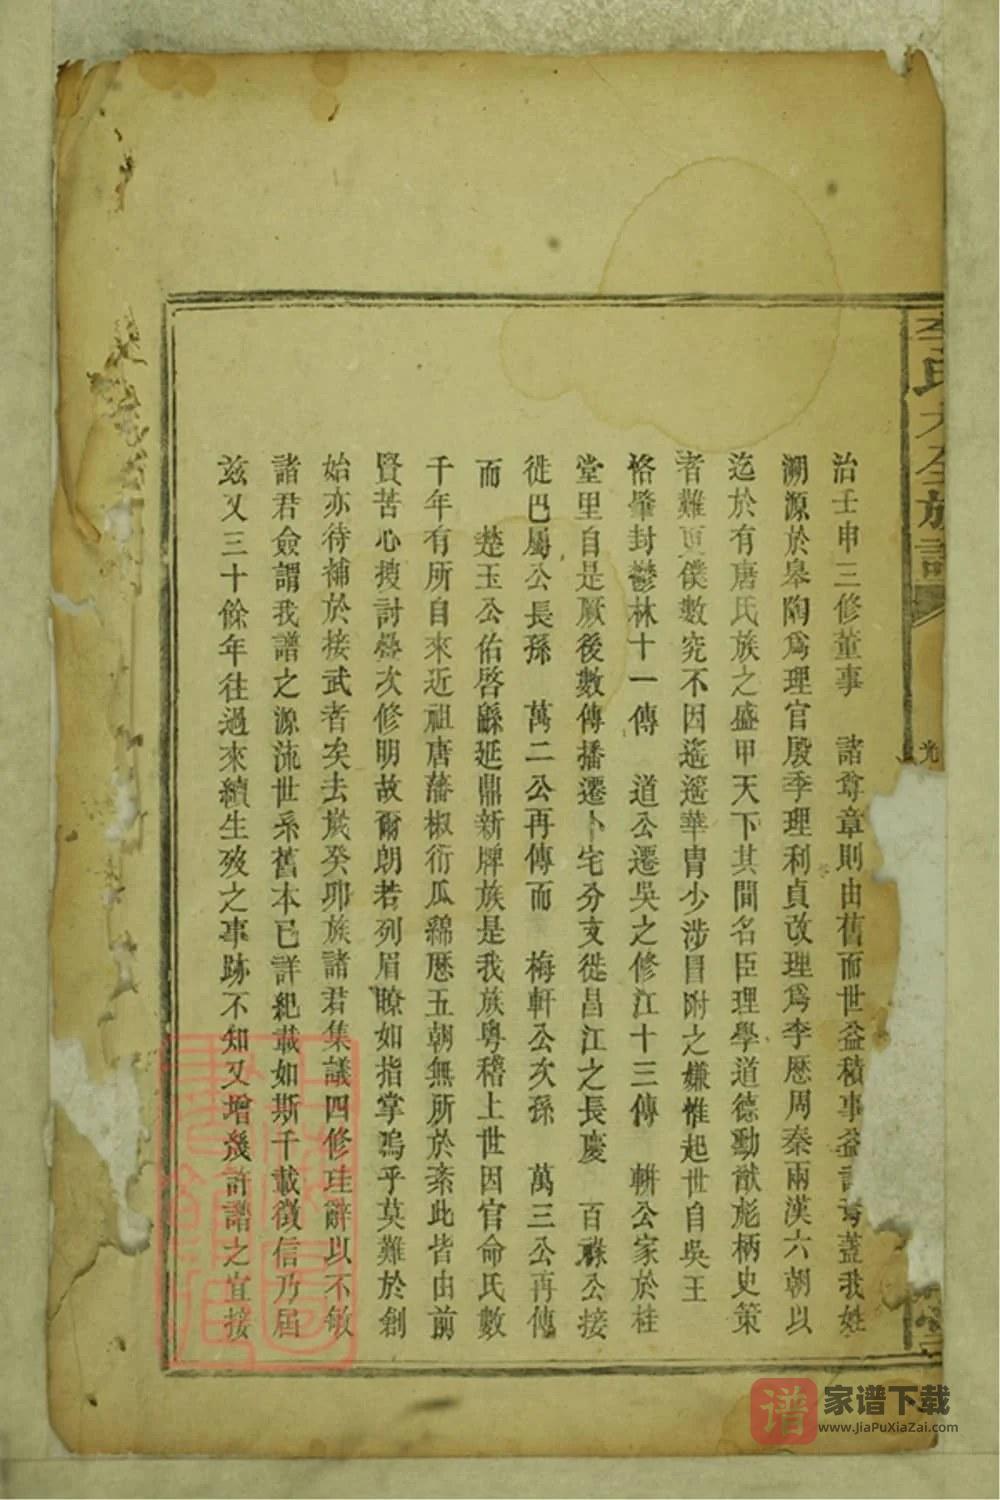 李氏大全族譜
治壬申三修董事 諸尊章則由舊而世益積事益 蓋我姓
溯源於皋陶爲理官殷季理利貞改理爲李歷周秦兩漢六朝以
迄於有唐氏族之盛甲天下其間名臣理學道德勳猷彪柄史策
者難更僕數究不因遙遙華胄少涉冒附之嫌惟起世自吳王
恪肇封鬱林十一傳 道公遷吳之修江十三傳 軿公家於桂
堂里自是厥後數傳播遷卜宅分支徙昌江之長慶 百祿公接
徙巴屬公長孫 萬二公再傳而 梅軒公次孫 萬三公再傳
而 楚玉公佑啓繇延鼎新牌族是我族粵稽上世因官命氏數
千年有所自來近祖唐藩椒衍瓜綿歷五朝無所於紊此皆由前
賢苦心搜討疊次修明故爾朗若列眉瞭如指掌嗚乎莫難於創
始亦待補於接武者矣去歲癸卯族諸君集議四修珪辭以不敏
諸君僉謂我譜之源流世系舊本已詳紀載如斯千載徵信乃屆
茲又三十餘年往過來續生歿之事跡不知又增幾許譜之宜接
家谱下载
www.JiaPuXiaZai.com
谱